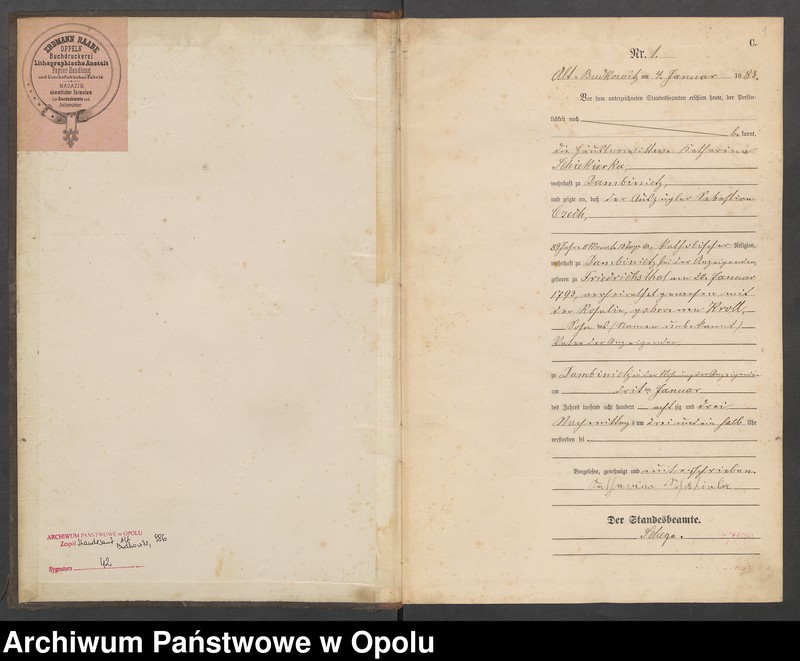 ERDMANN RAABE
OPPELN
Buchdruckerei
Lithographische Anstalt
Papier-Handlung
und Geschäftsbücher-Fabrik
MAGAZIN
sämmtlicher Formulare
für Standesämter und
Amtsvorsteher
ARCHIWUM PAŃSTWOWE w OPOLU
Zespół Standesamt Alt Budkowitz, 886
Sygnatura 42
1
C.
Nr. 1.
Alt-Budkowitz am 4. Januar 1883.
Vor dem unterzeichneten Standesbeamten erschien heute, der Persön-
lichkeit nach
bekannt,
die Häuslerwittwe Katharina
wohnhaft zu Dambinietz,
und zeigte an, daß der Auszügler Sebastian
Czech,
89 Jahre 11 Monate 13 Tage alt, katholischer Religion,
wohnhaft zu Dambinietz bei der Anzeigenden,
geboren zu Friedrichsthal am 20. Januar
1793, verheirathet gewesen mit
der Rosalie, geborenen Kroll,
Sohn des (Namen unbekannt)
Vater der Anzeigenden,
zu Dambinietz in der Wohnung der Anzeigenden
am dritten Januar
des Jahres tausend acht hundert achtzig und drei
Nachmittags um drei und ein halb Uhr
verstorben sei.
Vorgelesen, genehmigt und unterschrieben.
Katharina
Der Standesbeamte.
Archiwum Państwowe w Opolu